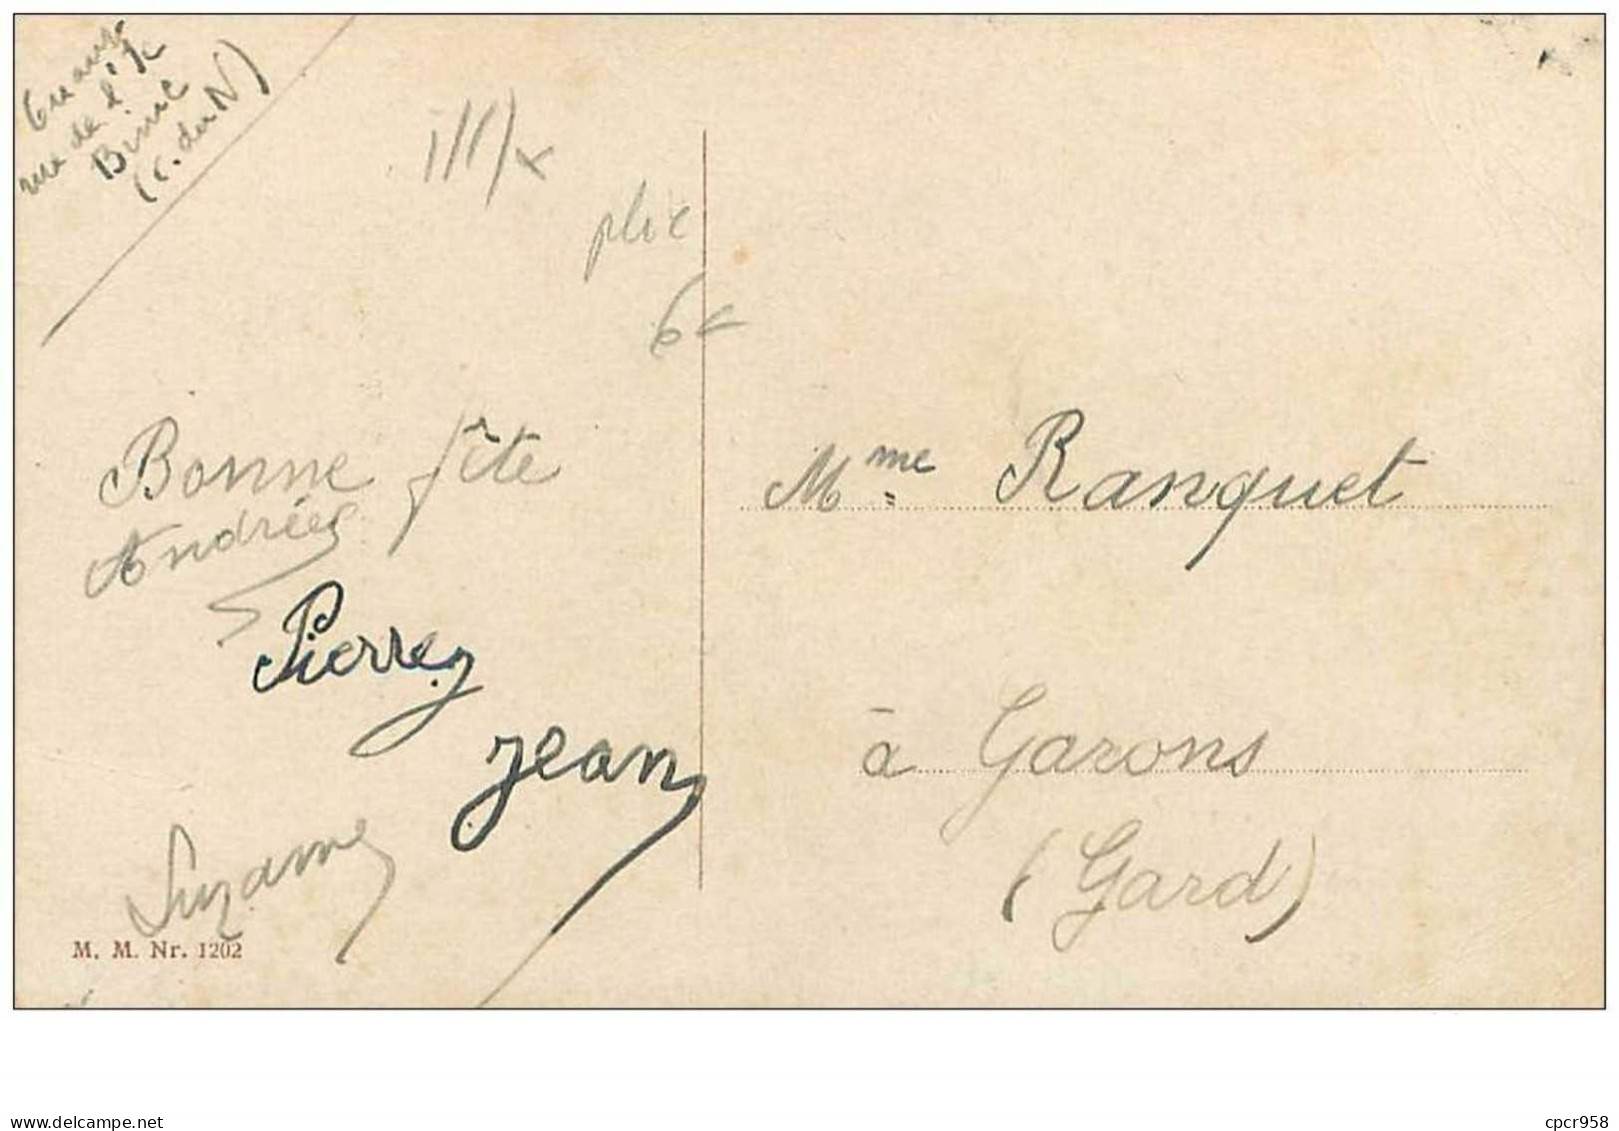 rue de l'Ic
Binic
(C. du N)
6c
Bonne fête
Andrée
Pierre
Jean
Suzanne
M. M. Nr. 1202
Mme Ranquet
à Garons
(Gard)
https://www.delcampe.net
cpcr958